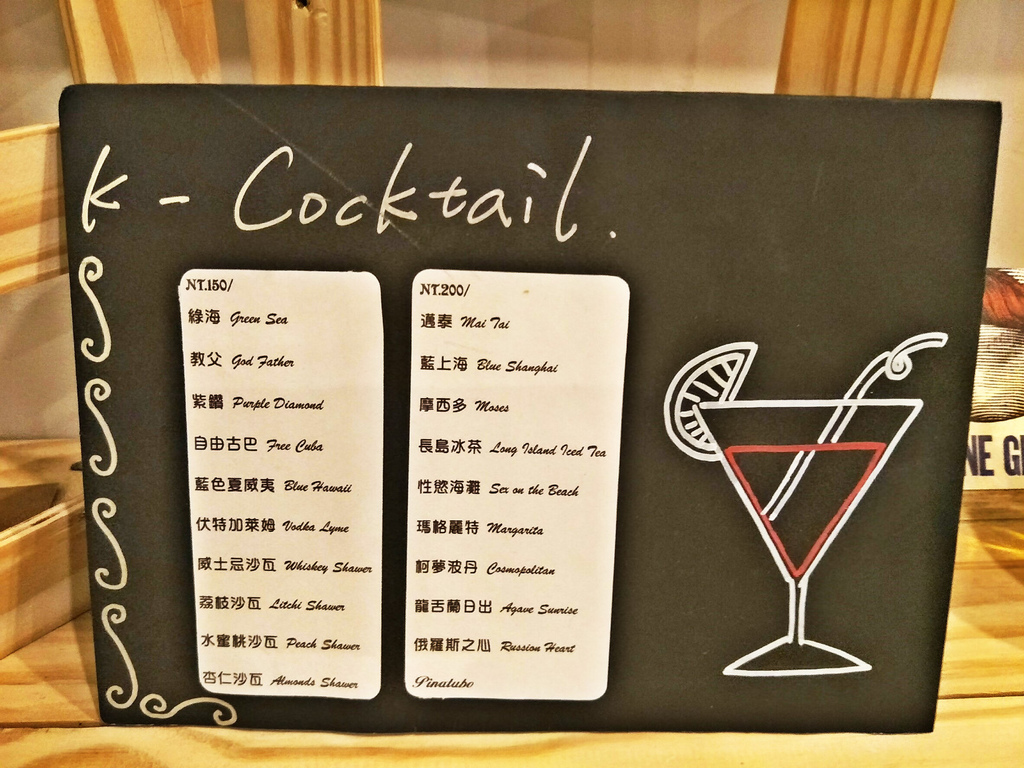 K - Cocktail.
NT.150/
綠海 Green Sea
教父 God Father
紫鑽 Purple Diamond
自由古巴 Free Cuba
藍色夏威夷 Blue Hawaii
伏特加萊姆 Vodka Lyme
威士忌沙瓦 Whiskey Shawer
荔枝沙瓦 Litchi Shawer
水蜜桃沙瓦 Peach Shawer
杏仁沙瓦 Almonds Shawer
NT.200/
邁泰 Mai Tai
藍上海 Blue Shanghai
摩西多 Moses
長島冰茶 Long Island Iced Tea
性慾海灘 Sex on the Beach
瑪格麗特 Margarita
柯夢波丹 Cosmopolitan
龍舌蘭日出 Agave Sunrise
俄羅斯之心 Russion Heart
Pinatubo